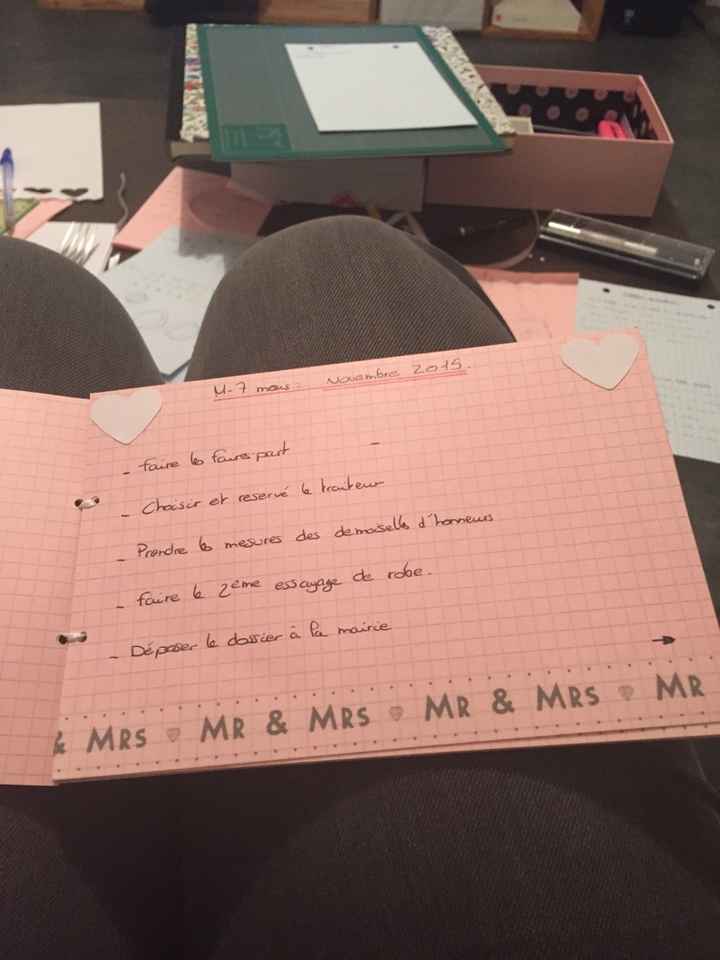 M-7 mois : Novembre 2015.
- faire les faires part -
- Choisir et reservé le traiteur
- Prendre les mesures des demoiselles d'honneurs
- faire le 2eme essayage de robe.
- Déposer le dossier à la mairie
& MRS MR & MRS MR & MRS MR